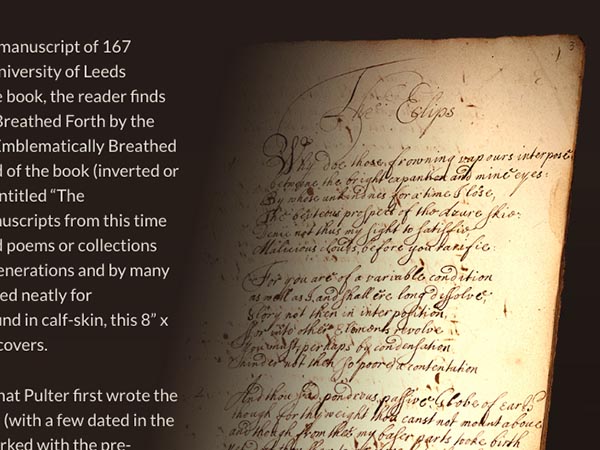 manuscript of 167
niversity of Leeds
e book, the reader finds
Breathed Forth by the
Emblematically Breathed
d of the book (inverted or
ntitled “The
nuscripts from this time
d poems or collections
enerations and by many
ed neatly for
und in calf-skin, this 8” x
covers.
hat Pulter first wrote the
(with a few dated in the
rked with the pre-
3
The Eclips
Why doe those frowning vapours interpose
betwine the bright expantion and mine eyes:
By whose unkindnes for a time I lose,
The beuteous prospect of the Azure skie:
Denie not thus my sight to satisfie
Malicious clouds, before you ratifie:
For you are of a variable condition
as well as I, and shall ere long dissolve,
Glory not then in interposition,
For into other Elements revolve
You must perhaps by condensation
hinder not then so poor a contentation
And thou sad, ponderous, passive Globe of earth
though for thy weight thou canst not mount above
and though from thee my baser parts tooke birth